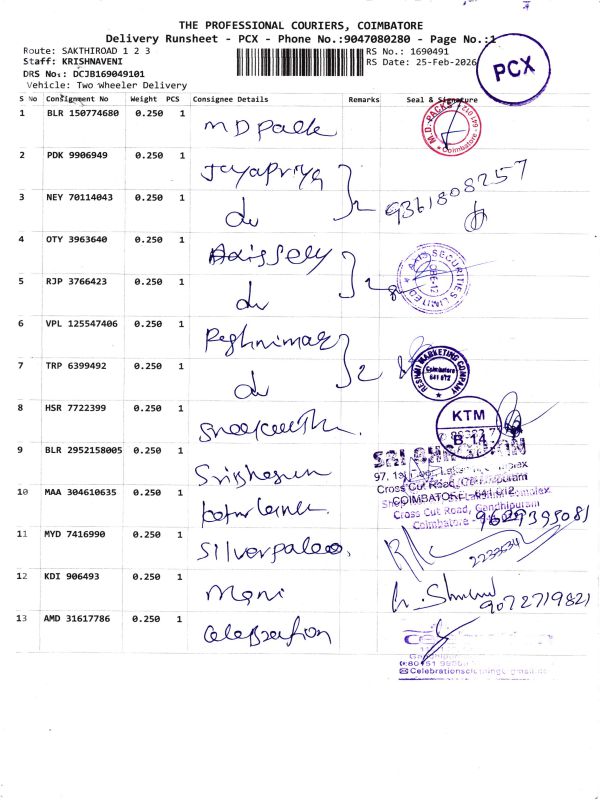 THE PROFESSIONAL COURIERS, COIMBATORE
Delivery Runsheet - PCX - Phone No.:9047080280 - Page No.:1
Route: SAKTHIROAD 1 2 3
RS No.: 1690491
Staff: KRISHNAVENI
RS Date: 25-Feb-2026
DRS No.: DCJB169049101
Vehicle: Two Wheeler Delivery
PCX
S No Consignment No Weight PCS Consignee Details Remarks Seal & Signature
1 BLR 150774680 0.250 1 MD Pack
M.D. PACKS Coimbatore
2 PDK 9906949 0.250 1 Jayapriya
9361808257
3 NEY 70114043 0.250 1 do 2
4 OTY 3963640 0.250 1
AXIS SECURITIES LIMITED
5 RJP 3766423 0.250 1 do 2
6 VPL 125547406 0.250 1
RESHMI MARKETING COMPANY Coimbatore 641 012
7 TRP 6399492 0.250 1 do 2
8 HSR 7722399 0.250 1
KTM
B.14
9 BLR 2952158005 0.250 1
SRI
Cross Cut Road, Gandhipuram
COIMBATORE - 641 012
10 MAA 304610635 0.250 1
Cross Cut Road, Gandhipuram
Coimbatore
9629395081
11 MYD 7416990 0.250 1
2233534
12 KDI 906493 0.250 1 Mani
9072719821
13 AMD 31617786 0.250 1 Celebration